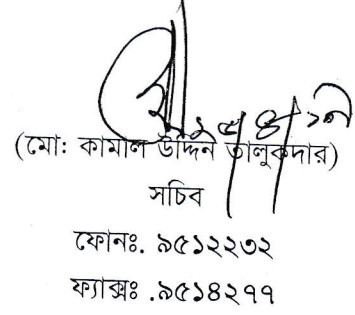 (মো: কামাল উদ্দিন তালুকদার)
সচিব
ফোনঃ. ৯৫১২২৩২
ফ্যাক্সঃ .৯৫১৪২৭৭